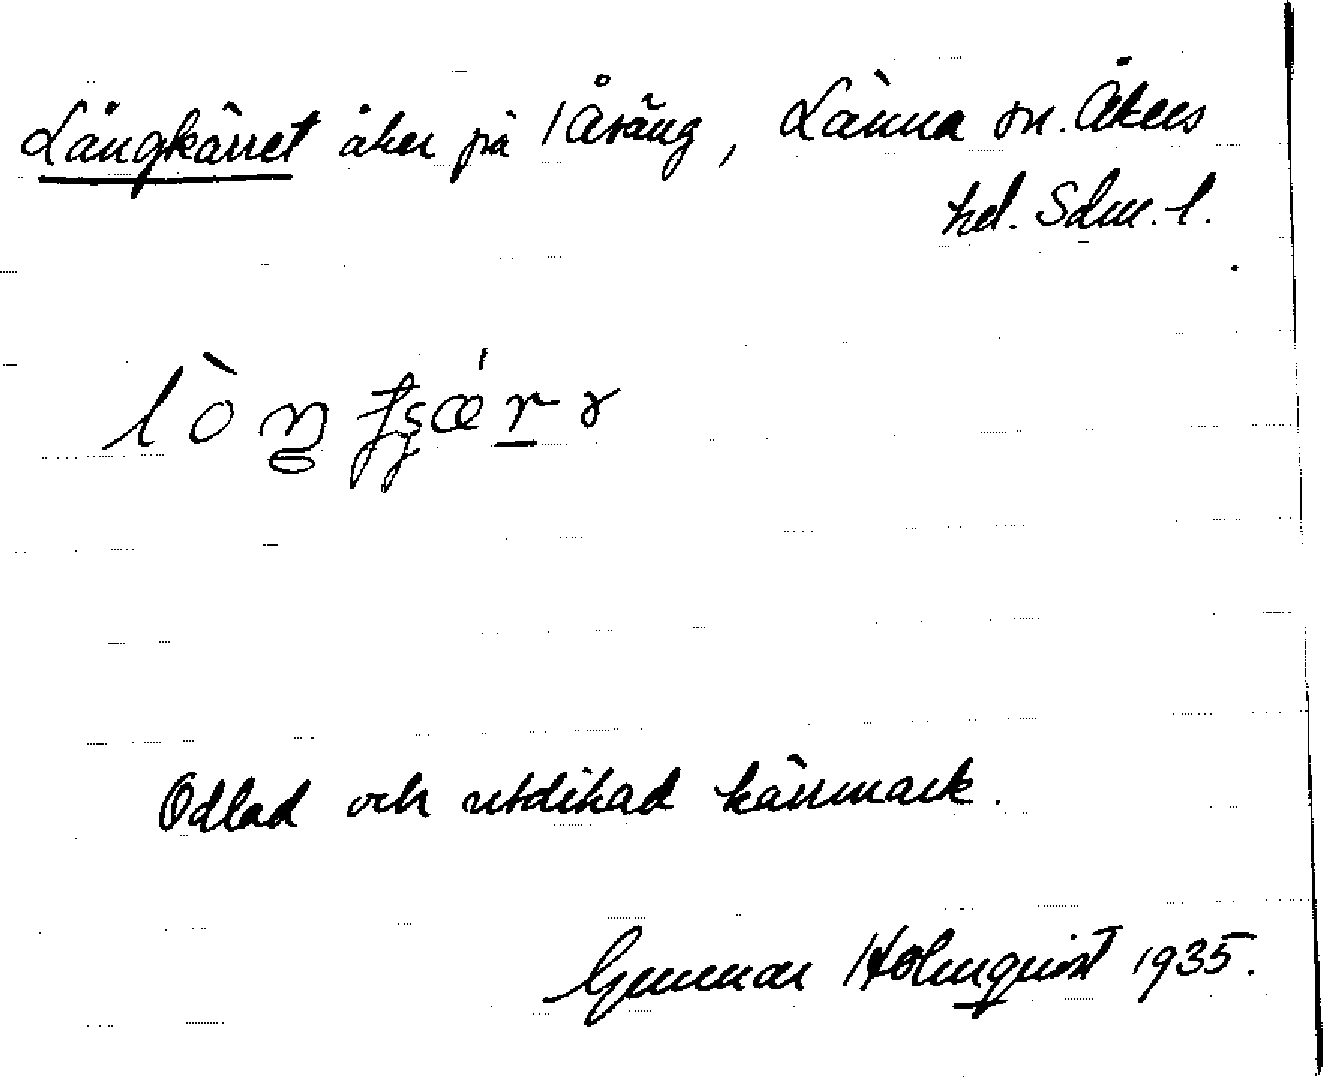 Långkärret åker på Åsäng, Länna sn. Åkers
hd. Sdm. l.
Odlad och utdikad kärrmark.
Gunnar Holmquist 1935.